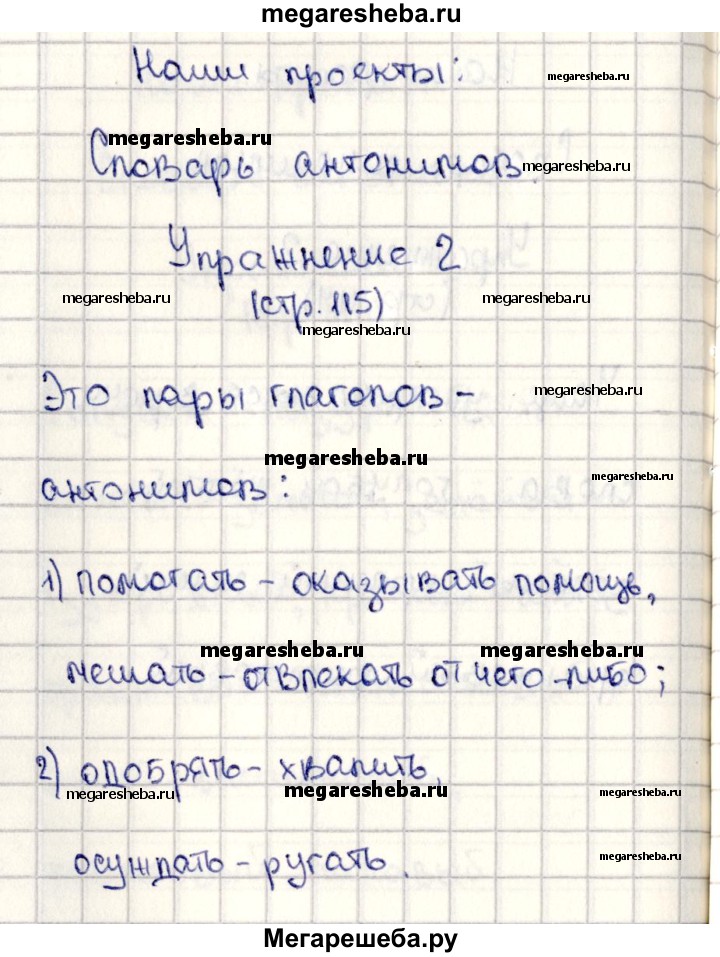 megaresheba.ru
Наши проекты:
megaresheba.ru
megaresheba.ru
Словарь антонимов.
megaresheba.ru
Упражнение 2
megaresheba.ru
(стр. 115)
megaresheba.ru
megaresheba.ru
Это пары глаголов -
megaresheba.ru
megaresheba.ru
антонимов:
megaresheba.ru
1) помогать - оказывать помощь,
megaresheba.ru
megaresheba.ru
мешать - отвлекать от чего-либо;
2) одобрять - хвалить,
megaresheba.ru
megaresheba.ru
megaresheba.ru
осуждать - ругать.
megaresheba.ru
Мегарешеба.ру